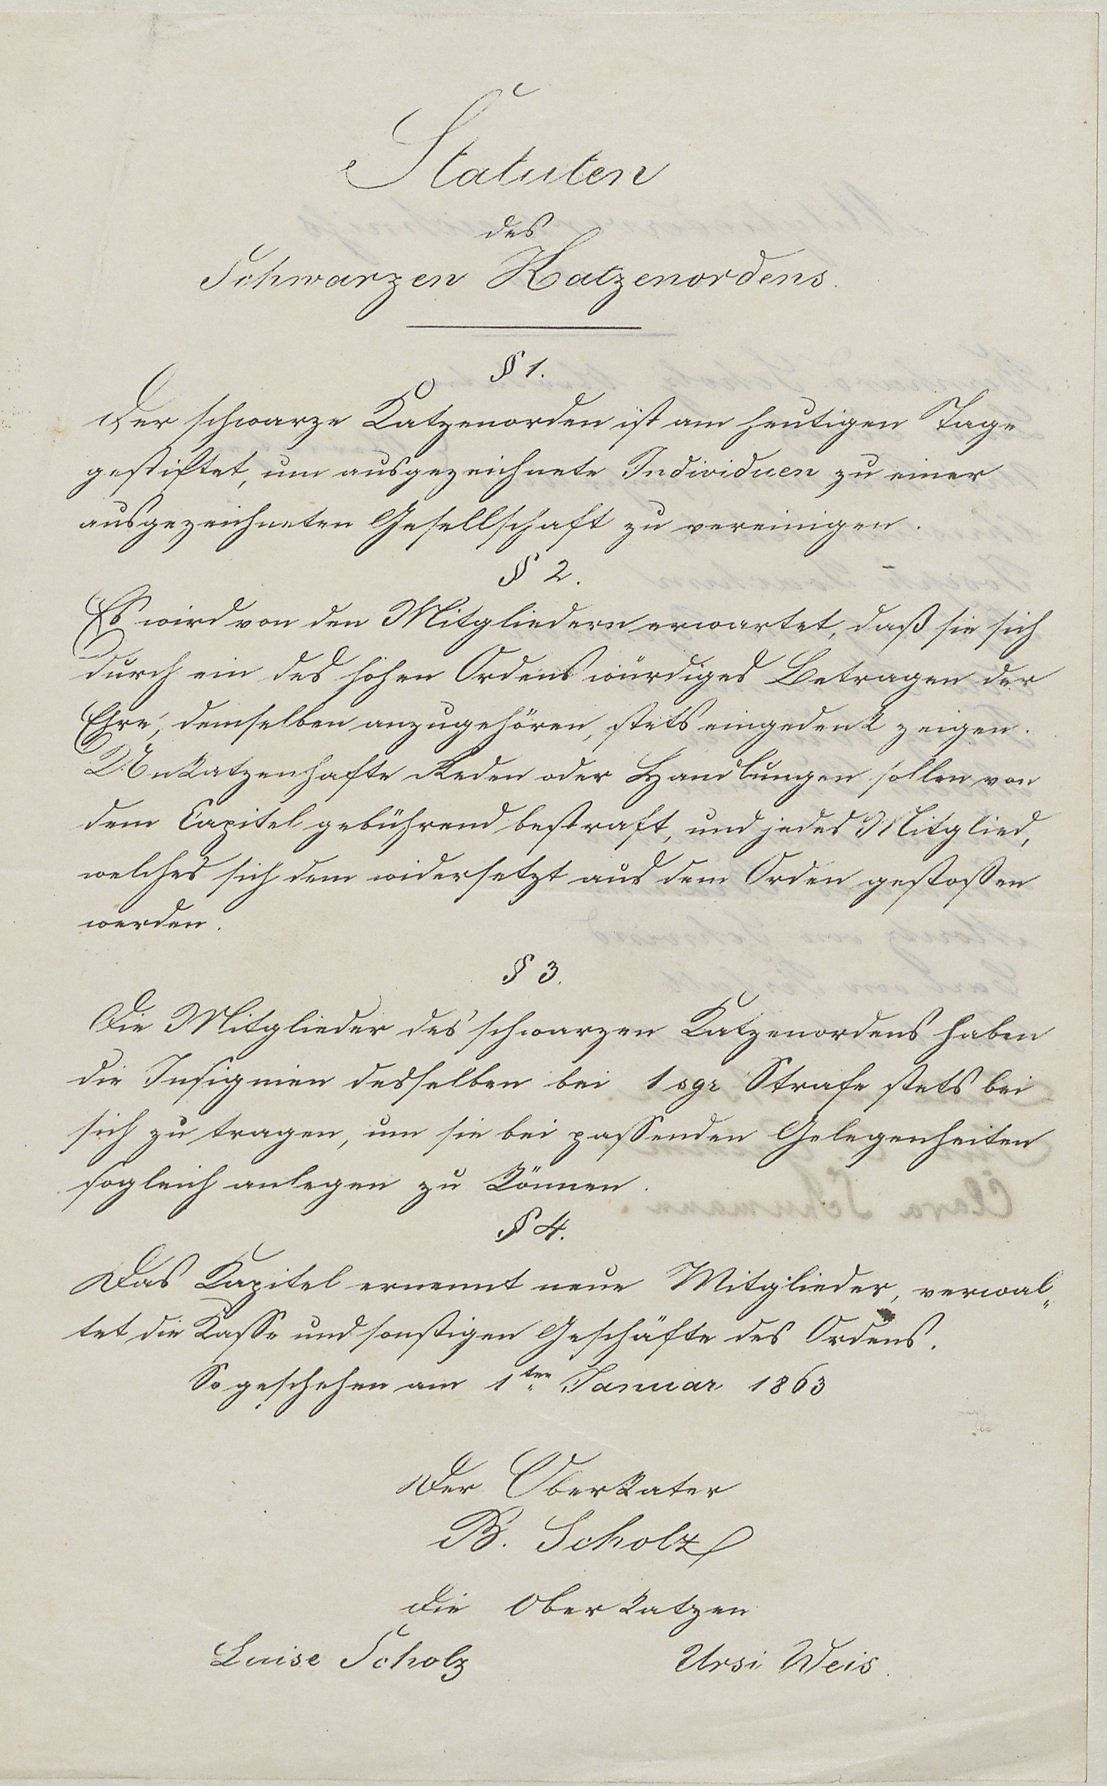 Statuten
des
Schwarzen Katzenordens.
§ 1.
Der schwarze Katzenorden ist am heutigen Tage
gestiftet, um ausgezeichnete Individuen zu einer
ausgezeichneten Gesellschaft zu vereinigen.
§ 2.
Es wird von den Mitgliedern erwartet, daß sie sich
durch ein des hohen Ordens würdiges Betragen der
Ehre, demselben anzugehören, stets eingedenk zeigen.
Unkatzenhafte Reden oder Handlungen sollen von
dem Capitel gebührend bestraft, und jedes Mitglied,
welches sich dem widersetzt aus dem Orden gestoßen
werden.
§ 3.
Die Mitglieder des schwarzen Katzenordens haben
die Insignien desselben bei 1 sgr Strafe stets bei
sich zu tragen, um sie bei passenden Gelegenheiten
sogleich anlegen zu können.
§ 4.
Das Kapitel ernennt neue Mitglieder, verwal„
tet die Kasse und sonstigen Geschäfte des Ordens.
So geschehen am 1ten Januar 1863
Der Oberkater
B. Scholz
Die Oberkatzen
Luise Scholz Ursi Weis.